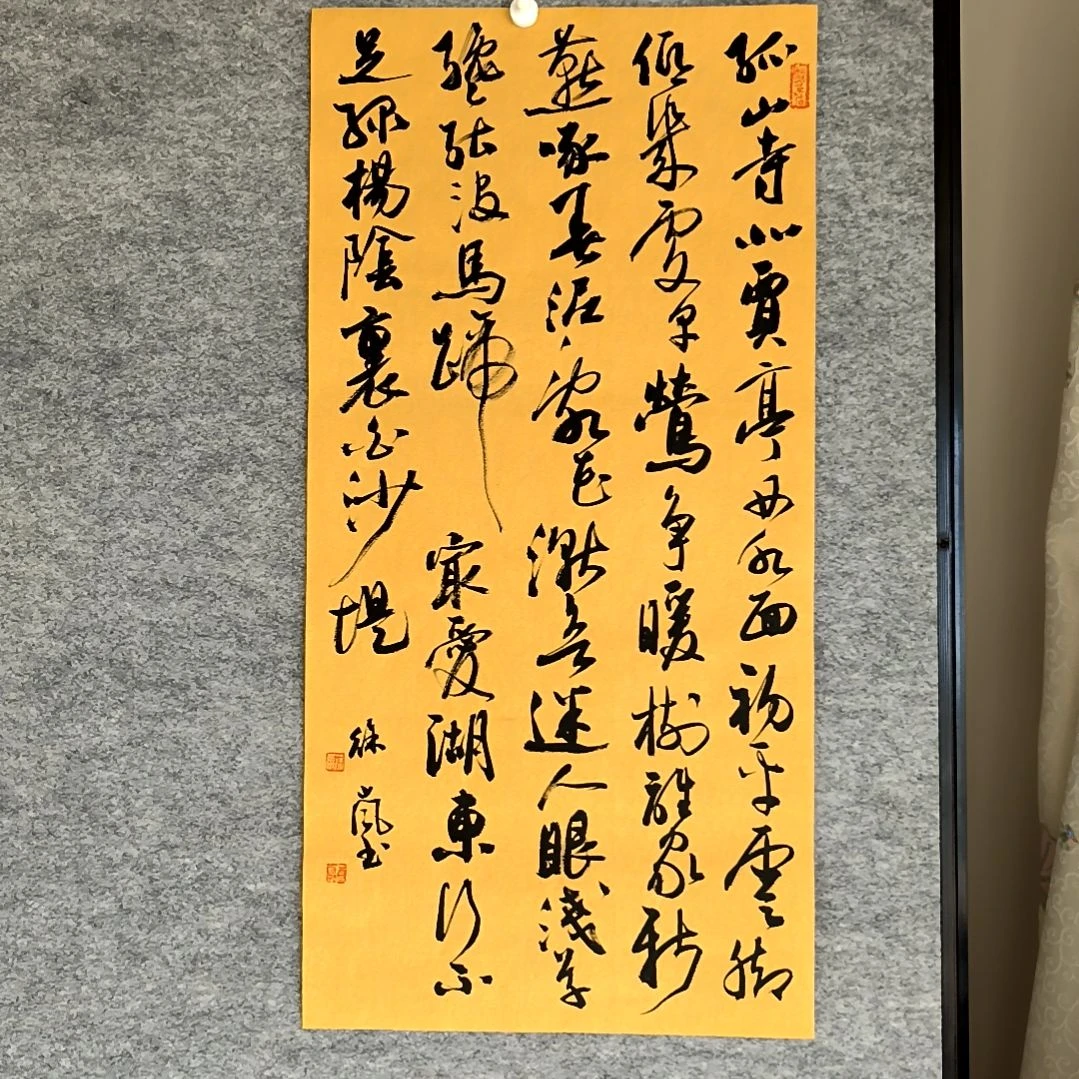 孤山寺北賈亭西水面初平雲脚
低幾處早鶯争暖樹誰家新
燕啄春泥亂花漸欲迷人眼淺草
纔能没馬蹄最愛湖東行不
足綠楊陰裏白沙堤
徐嵐书